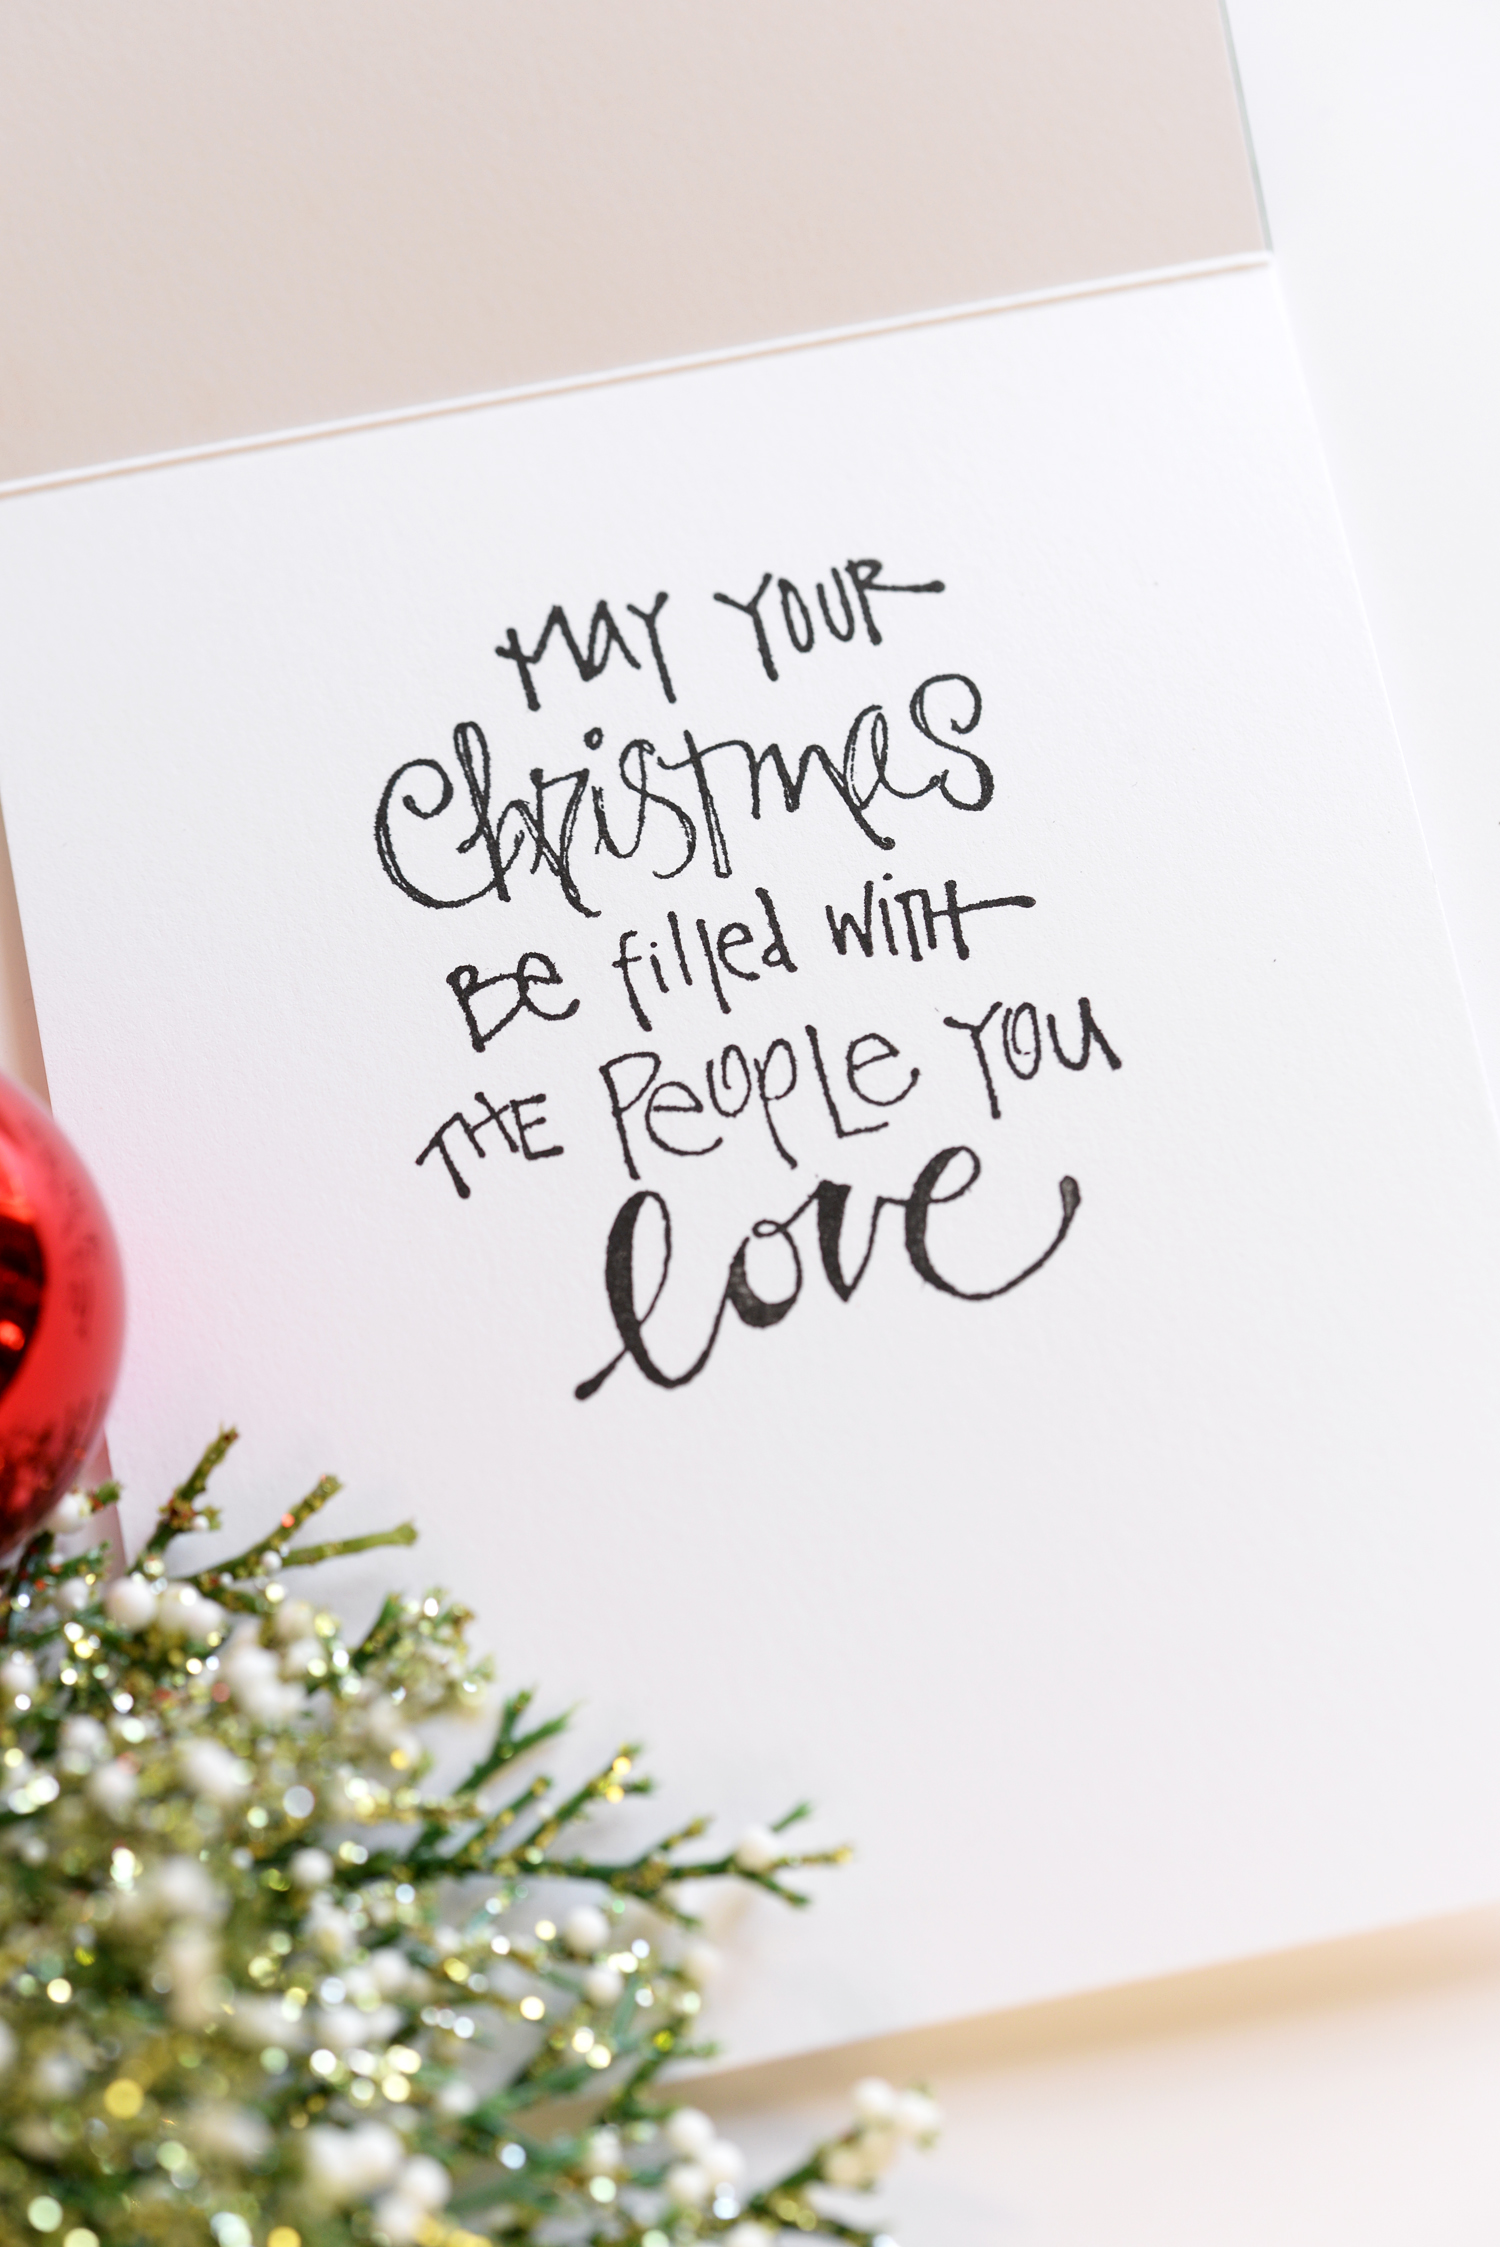 MAY YOUR
Christmas
Be filled with
THE PEOPLE YOU
love